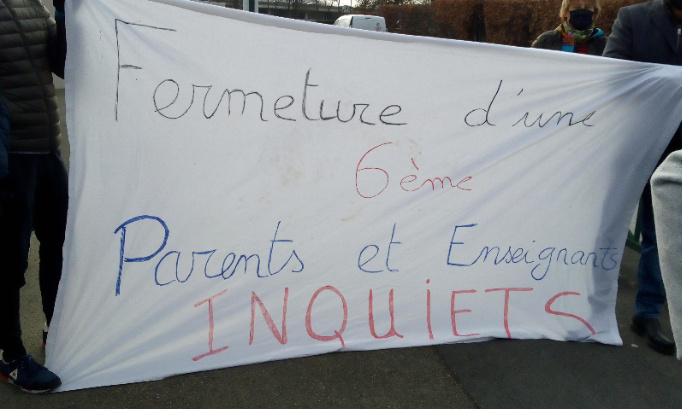 Fermeture d'une
6ème
Parents et Enseignants
INQUiETS